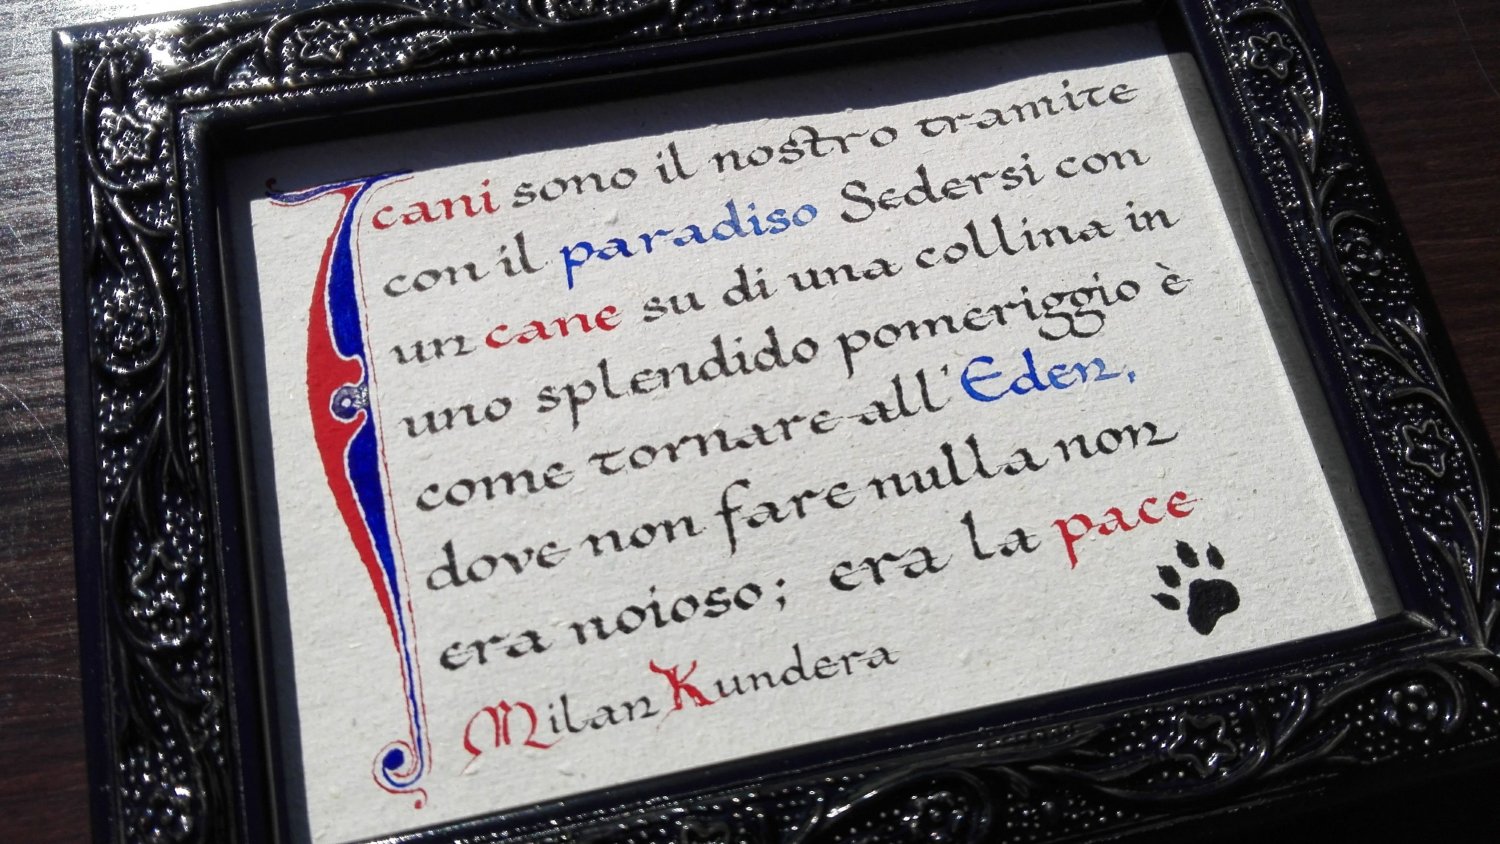 I cani sono il nostro tramite
con il paradiso Sedersi con
un cane su di una collina in
uno splendido pomeriggio è
come tornare all'Eden,
dove non fare nulla non
era noioso; era la pace
Milan Kundera